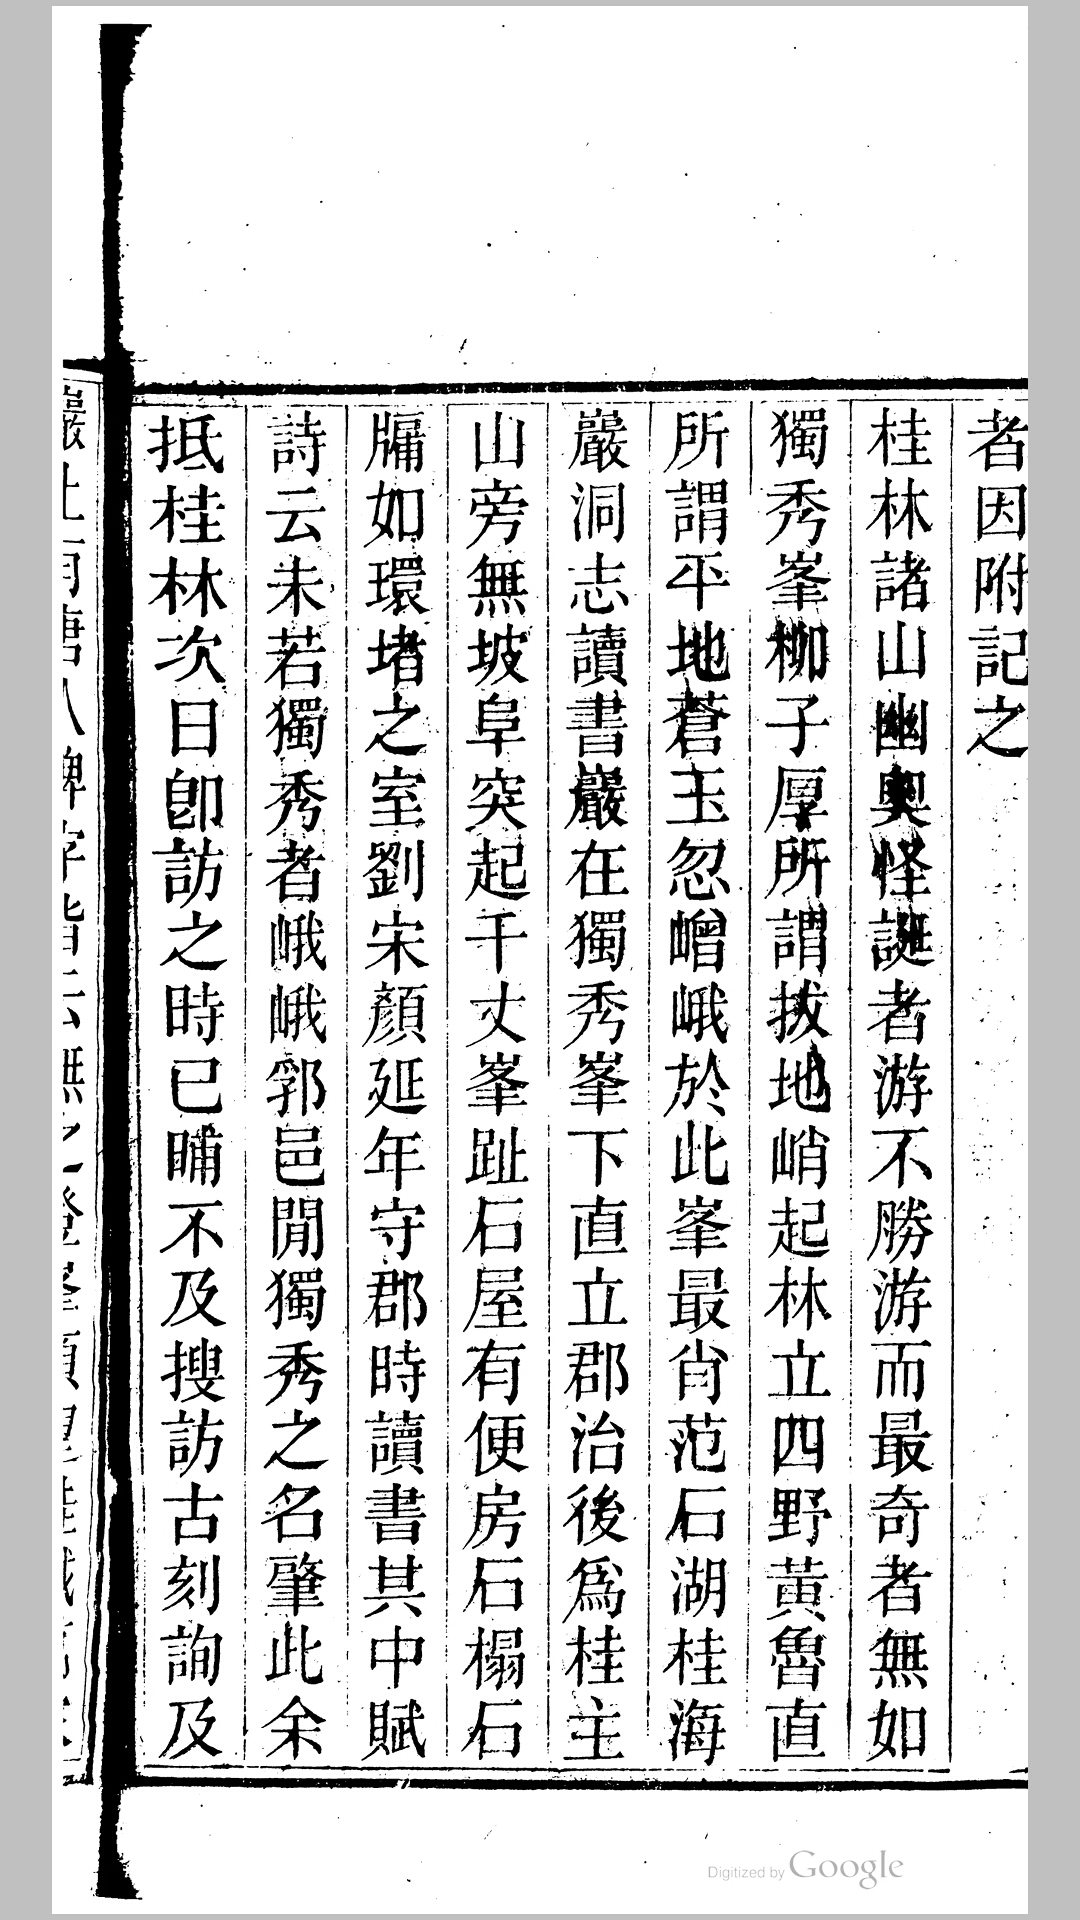 者因附記之
桂林諸山幽奧怪誕者游不勝游而最奇者無如
獨秀峯柳子厚所謂拔地峭起林立四野黃魯直
所謂平地蒼玉忽嶒峨於此峯最肖范石湖桂海
巖洞志讀書巖在獨秀峯下直立郡治後爲桂主
山旁無坡阜突起千丈峯趾石屋有便房石榻石
牖如環堵之室劉宋顏延年守郡時讀書其中賦
詩云未若獨秀者峨峨郛邑閒獨秀之名肇此余
抵桂林次日卽訪之時已晡不及搜訪古刻詢及
Digitized by Google